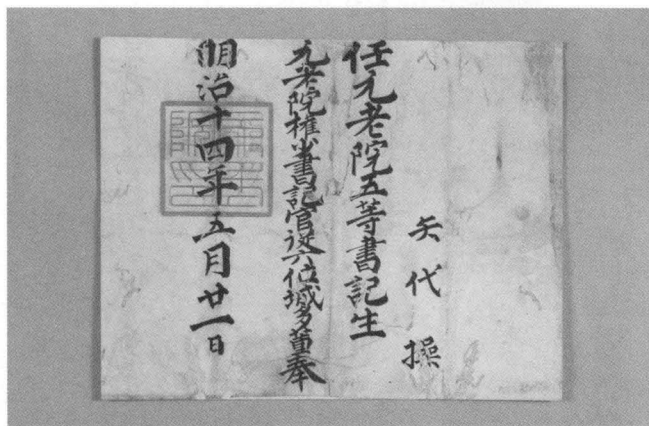 矢代操
任元老院五等書記生
元老院権少書記官従六位城多董奉
明治十四年五月廿一日